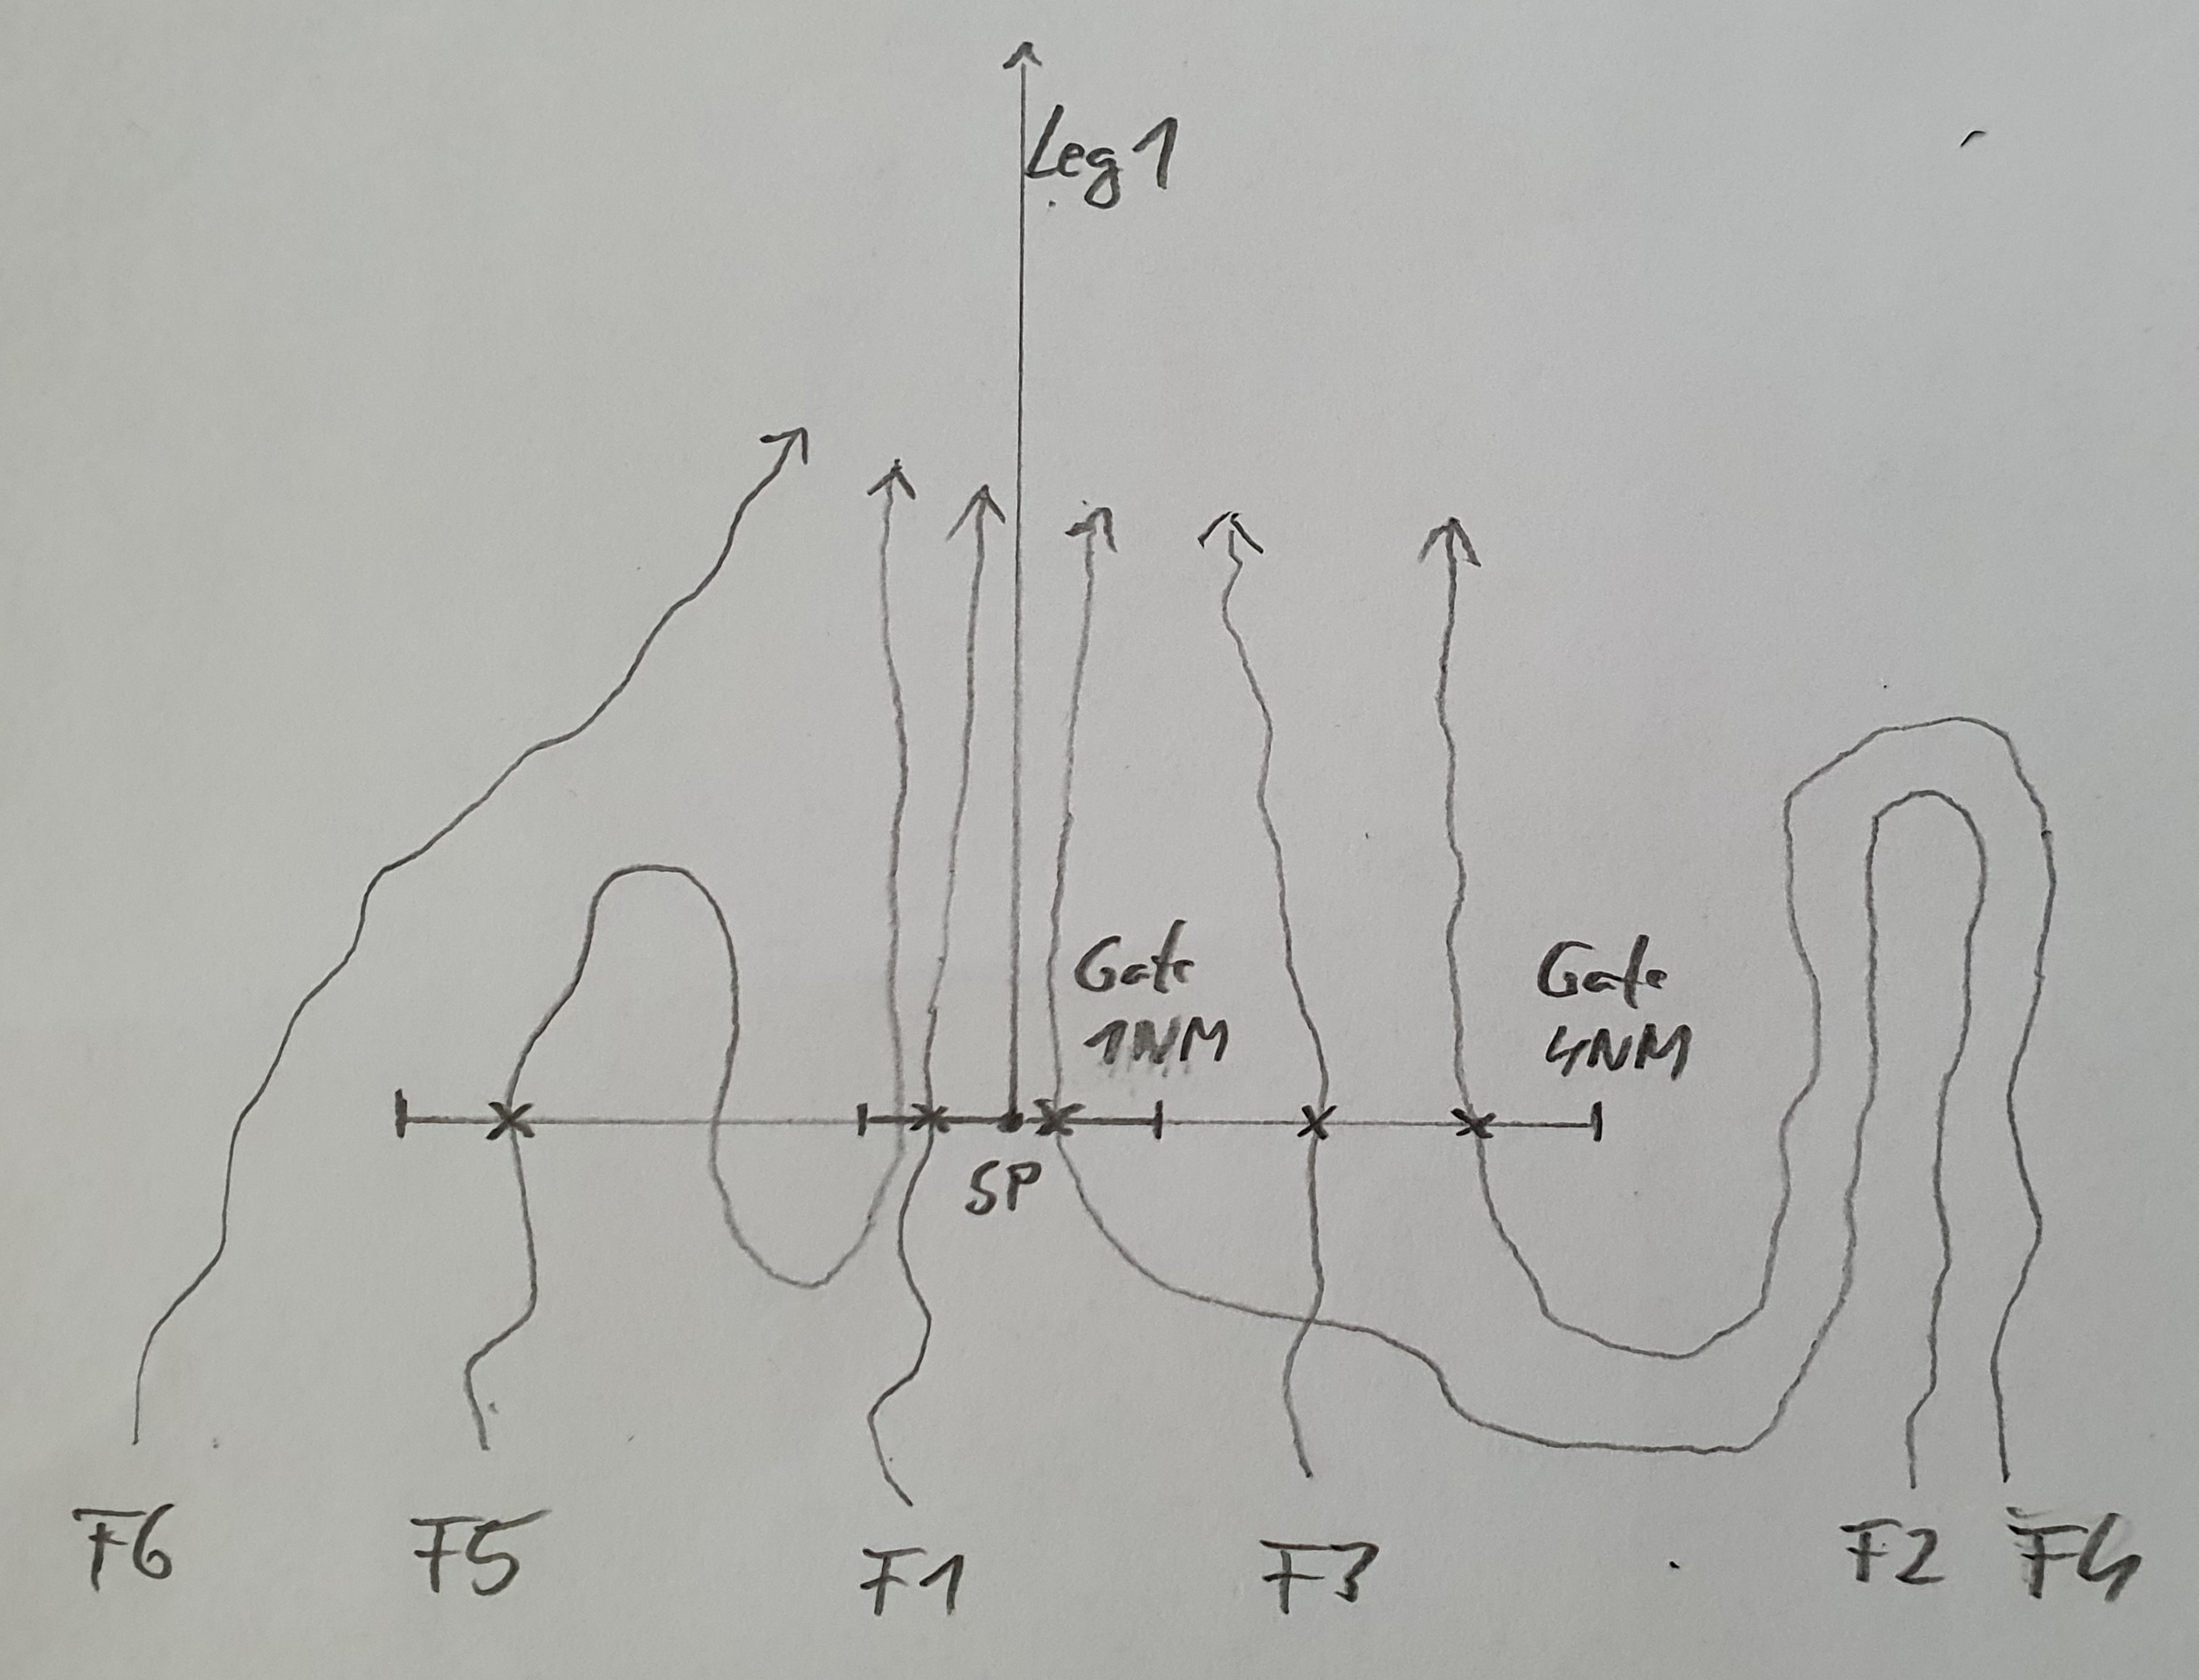 Leg 1
Gate
1NM
Gate
4NM
SP
F6
F5
F1
F3
F2
F4